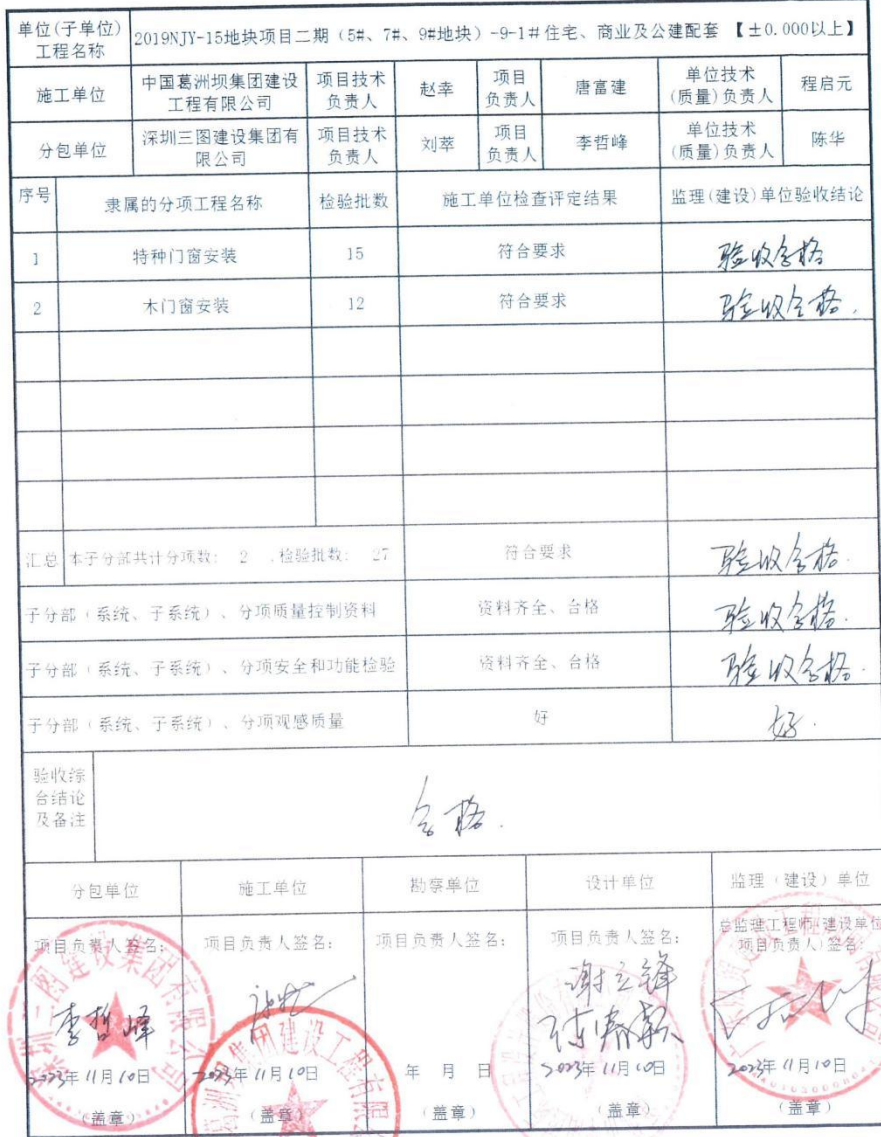 单位(子单位)
工程名称
2019NJY-15地块项目二期（5#、7#、9#地块）-9-1#住宅、商业及公建配套 【±0.000以上】
施工单位
中国葛洲坝集团建设
工程有限公司
项目技术
负责人
赵幸
项目
负责人
唐富建
单位技术
(质量)负责人
程启元
分包单位
深圳三图建设集团有
限公司
项目技术
负责人
刘萃
项目
负责人
李哲峰
单位技术
(质量)负责人
陈华
序号
隶属的分项工程名称
检验批数
施工单位检查评定结果
监理(建设)单位验收结论
1
特种门窗安装
15
符合要求
验收合格
2
木门窗安装
12
符合要求
验收合格.
汇总
本子分部共计分项数: 2 ,检验批数: 27
符合要求
验收合格.
子分部（系统、子系统）、分项质量控制资料
资料齐全、合格
验收合格.
子分部（系统、子系统）、分项安全和功能检验
资料齐全、合格
验收合格.
子分部（系统、子系统）、分项观感质量
好
好.
验收综
合结论
及备注
合格.
分包单位
施工单位
勘察单位
设计单位
监理（建设）单位
项目负责人签名:
项目负责人签名:
项目负责人签名:
项目负责人签名:
总监理工程师(建设单位
项目负责人)签名:
李哲峰
谢立锋
2023年11月10日
2023年11月10日
年 月 日
2023年11月10日
2023年11月10日
(盖章)
(盖章)
(盖章)
(盖章)
(盖章)
深圳三图建设集团有限公司